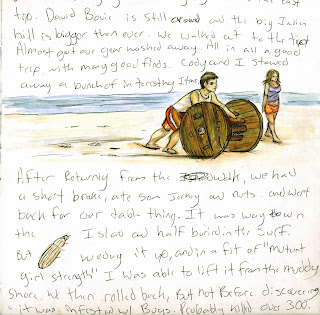 trip. David Bowie is still around and the big Indian
hill is bigger then ever. We walked out to the
Almost got our gear washed away. All in all a good
trip, with many good finds. Cody and I stowed
away a bunch of interesting Items.
After Returning from the walk, we had
a short brake, ate som Jerky and nuts. and went
back for our table thing. It was way down
the Island and half buried in the surf.
But we dug it up, and in a fit of "mutant
girl strength" I was able to lift it from the muddy
shore. We then rolled back, But not Before discovering
it was infested w/ Bugs. Probably killed over 300.